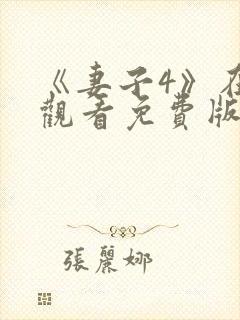 《妻子4》在
觀看免費版
張麗娜